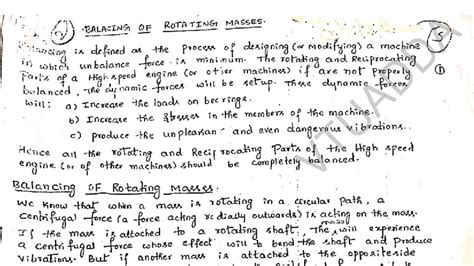 BALACING OF ROTATING MASSES.
Balancing is defined as the process of designing (or modifying) a machine
in which unbalance force is minimum. The rotating and Reciprocating
Parts of a High speed engine (or other machines) if are not properly
balanced, the dynamic forces will be setup. These dynamic forces
will: a) Increase the loads on bearings.
b) Increase the stresses in the members of the machine.
c) produce the unpleasant and even dangerous vibrations..
Hence all the rotating and Reciprocating Parts of the High speed
engine (or of other machines) should be completely balanced.
Balancing OF Rotating Masses.
We know that when a mass is rotating in a circular path, a
centrifugal force (a force acting radially outwards) is acting on the mass.
If the mass is attached to a rotating shaft, the will experience
a centrifugal force whose effect will to bend the shaft and produce
vibrations. But if another mass is attached to the oppositeside
VTUADDA
5
1